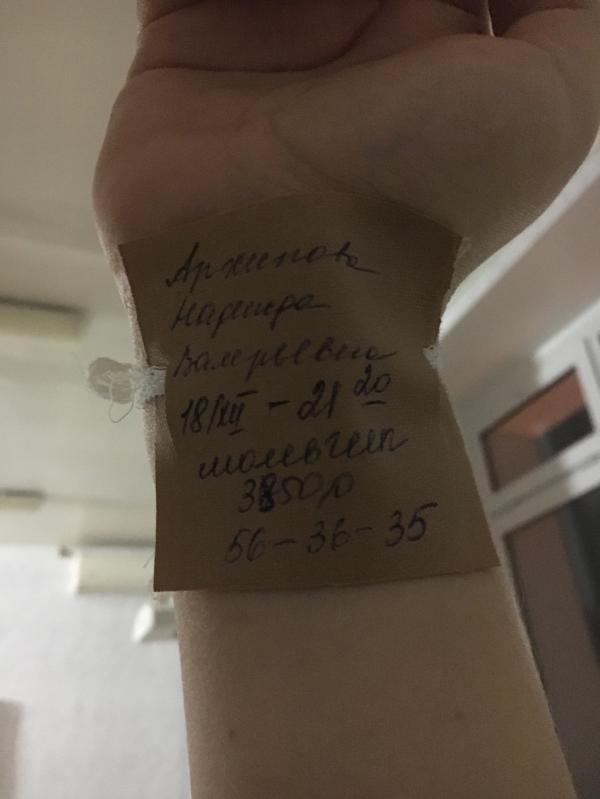 Архипова
Надежда
Валерьевна
18/XII - 21 20
мальчик
3850 р
56 - 36 - 35